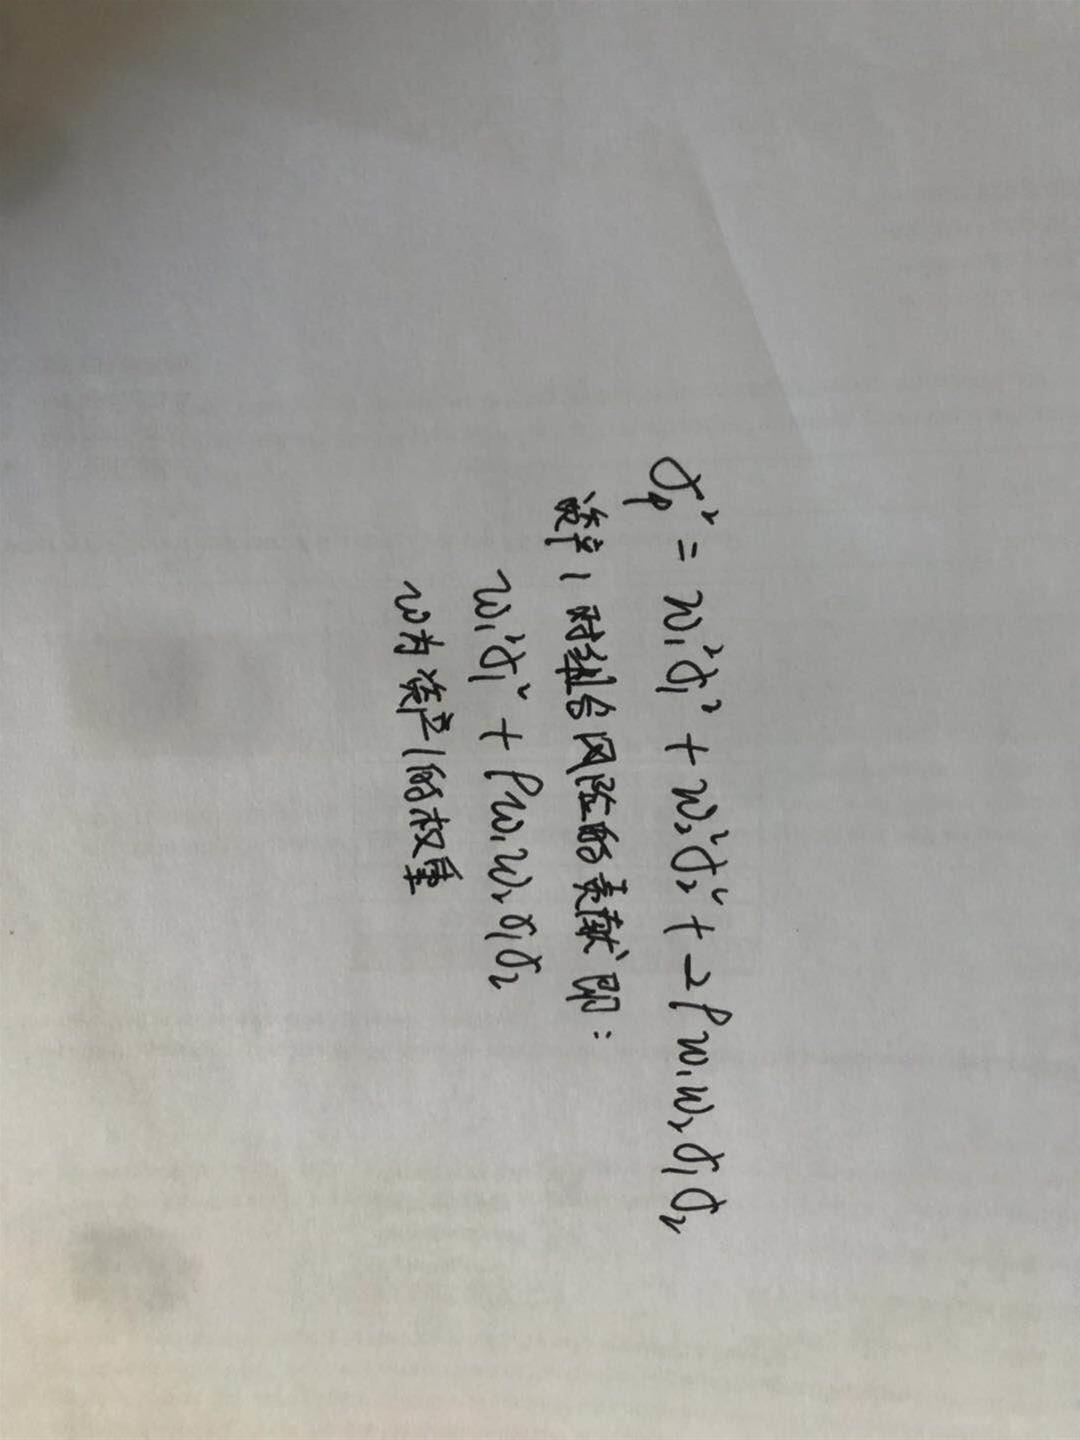 σₚ² = w₁²σ₁² + w₂²σ₂² + 2ρw₁w₂σ₁σ₂
资产1对组合风险的贡献即:
w₁²σ₁² + ρw₁w₂σ₁σ₂
w为资产1的权重